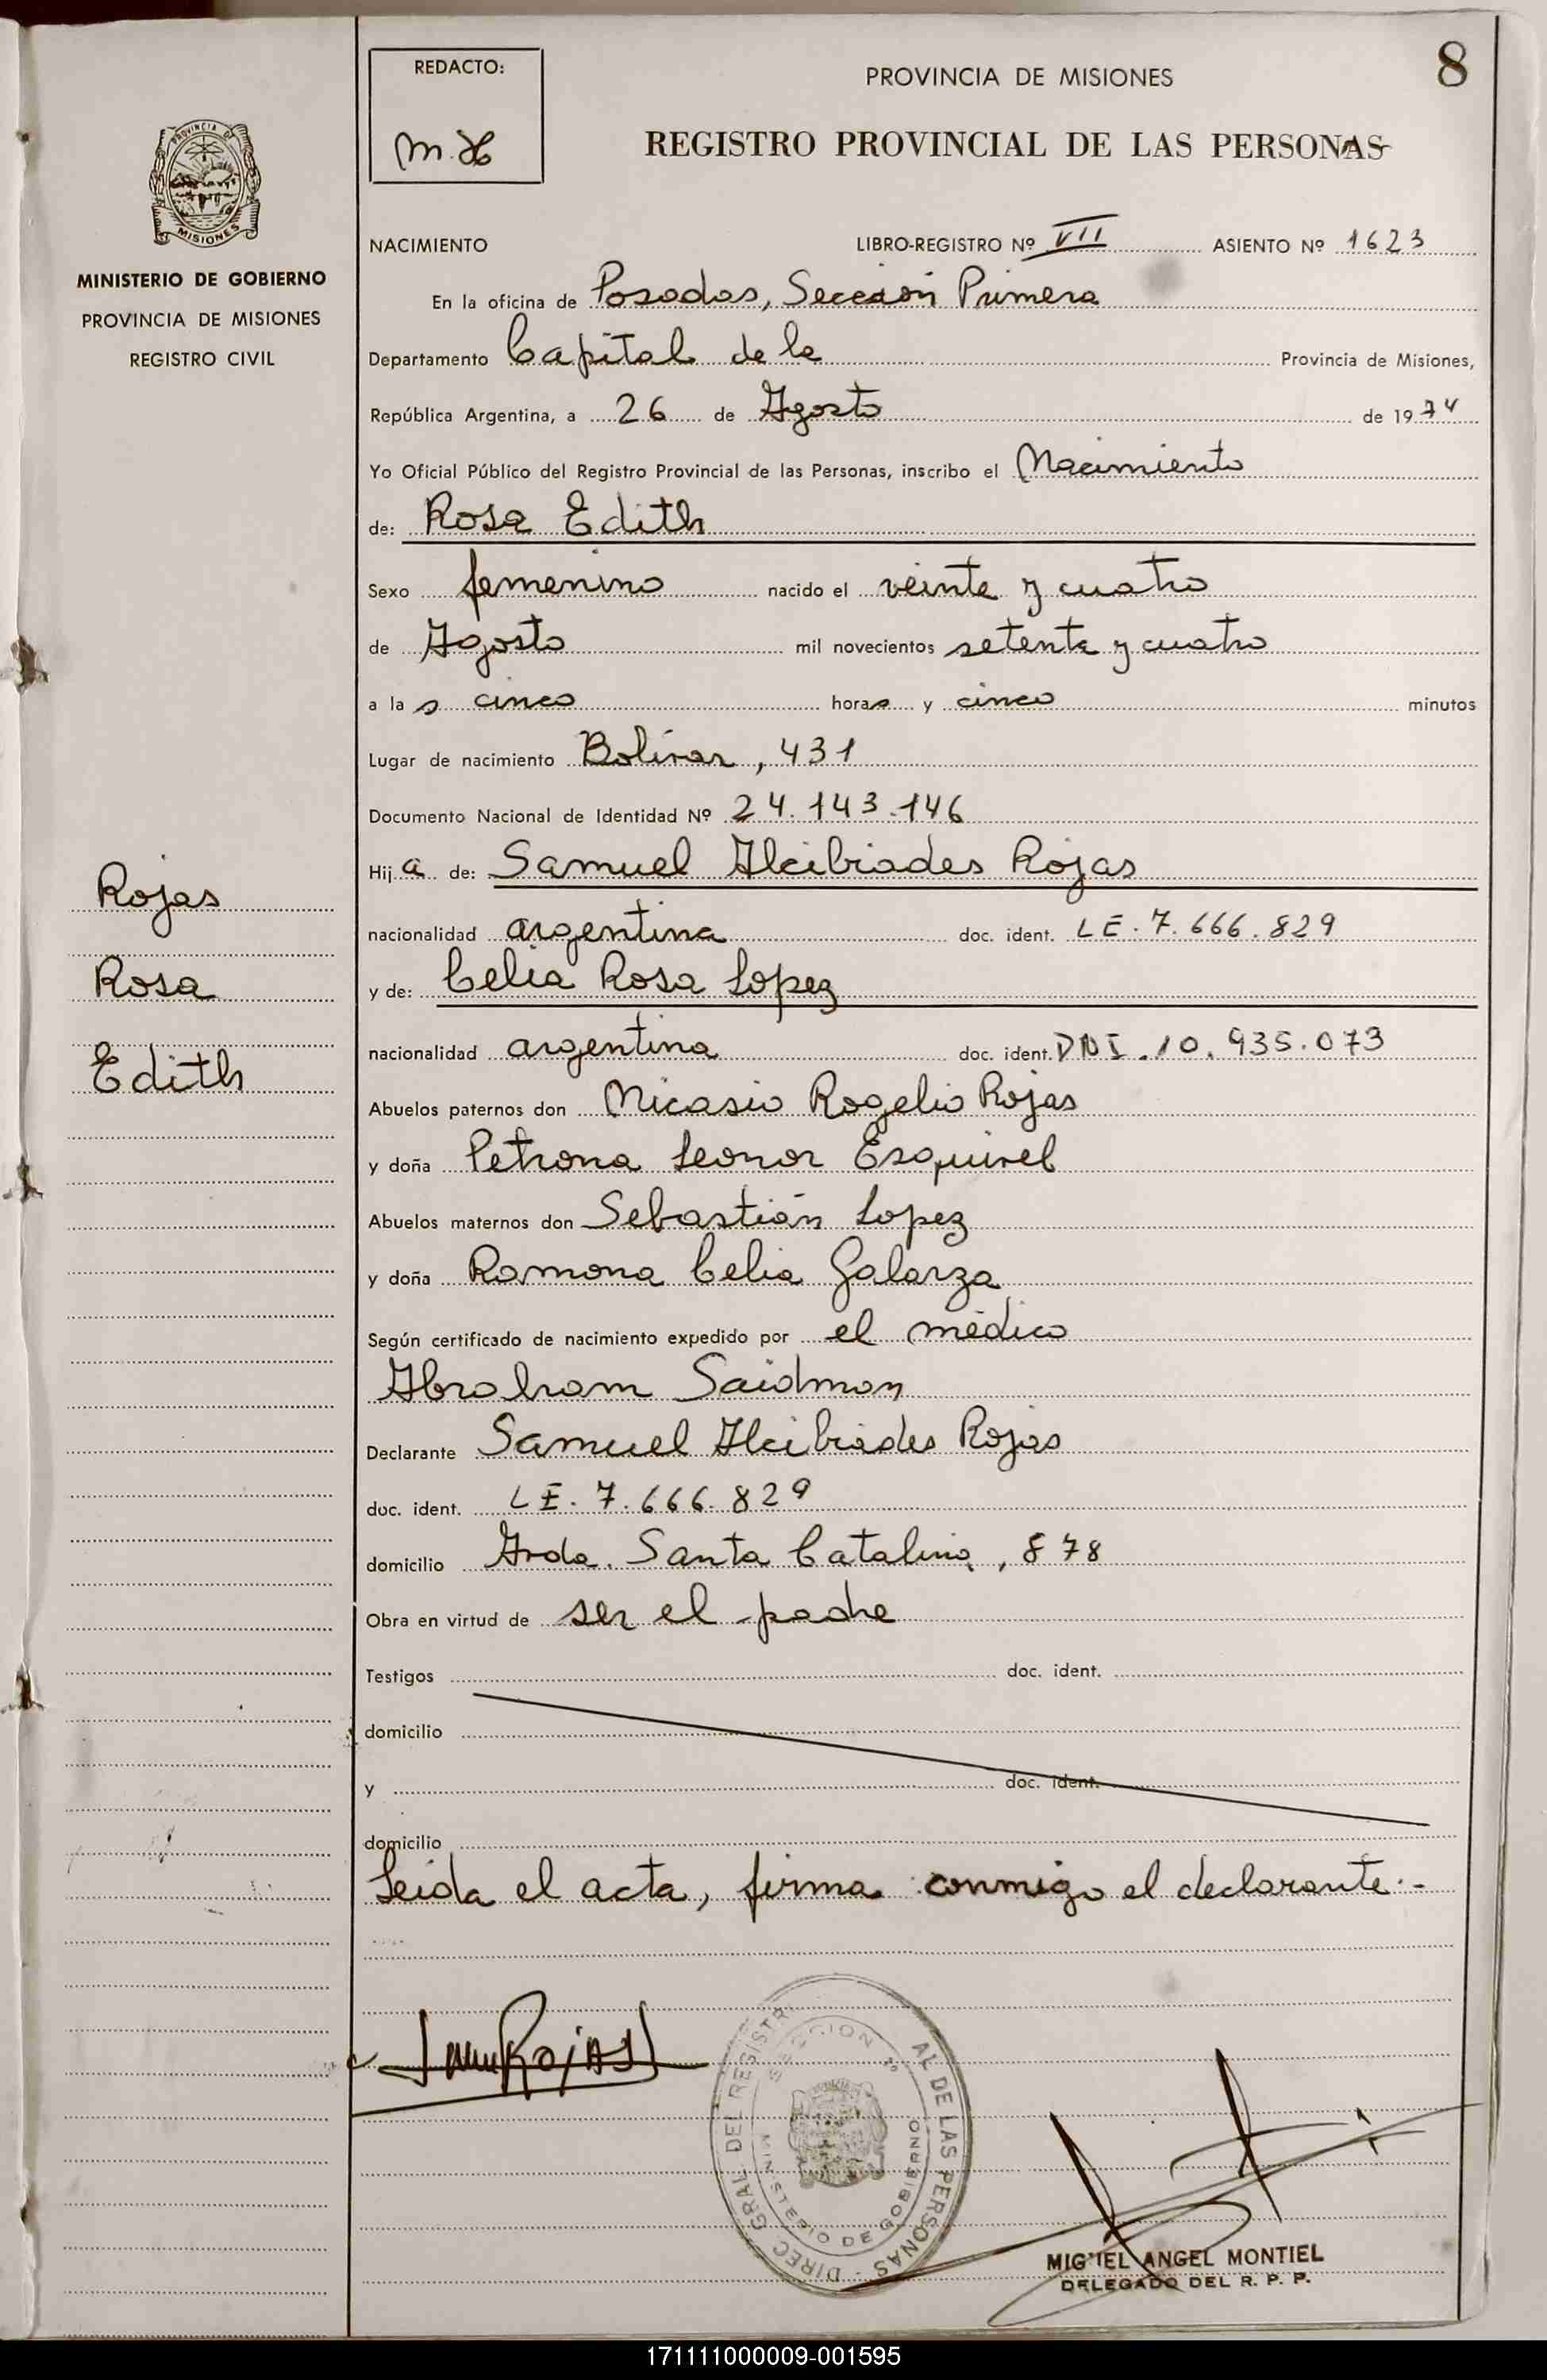 8
REDACTO:
PROVINCIA DE MISIONES
REGISTRO PROVINCIAL DE LAS PERSONAS
PROVINCIA DE
MISIONES
MINISTERIO DE GOBIERNO
PROVINCIA DE MISIONES
REGISTRO CIVIL
NACIMIENTO LIBRO-REGISTRO Nº VII ASIENTO Nº 1623
En la oficina de Posadas, Sección Primera
Departamento Capital de la Provincia de Misiones,
República Argentina, a 26 de Agosto de 1974
Yo Oficial Público del Registro Provincial de las Personas, inscribo el Nacimiento
de: Rosa Edith
Sexo femenino nacido el veinte y cuatro
de Agosto mil novecientos setenta y cuatro
a las cinco horas y cinco minutos
Lugar de nacimiento Bolívar, 431
Documento Nacional de Identidad Nº 24.143.146
Hija de: Samuel Alcibiades Rojas
Rojas
nacionalidad argentina doc. ident. LE. 7.666.829
Rosa
y de: Celia Rosa Lopez
Edith
nacionalidad argentina doc. ident. DNI. 10.935.073
Abuelos paternos don Nicasio Rogelio Rojas
y doña Petrona Leonor Esquivel
Abuelos maternos don Sebastián Lopez
y doña Ramona Celia Galarza
Según certificado de nacimiento expedido por el médico
Abraham Saidman
Declarante Samuel Alcibiades Rojas
doc. ident. LE. 7.666.829
domicilio Avda. Santa Catalina, 878
Obra en virtud de ser el padre
Testigos doc. ident.
domicilio
y doc. ident.
domicilio
Leida el acta, firma conmigo el declarante.-
Rojas
DIREC. GRAL. DEL REGISTR AL DE LAS PERSONAS
SECCION 1º
MINISTERIO DE GOBIERNO
MIGUEL ANGEL MONTIEL
DELEGADO DEL R. P. P.
171111000009-001595